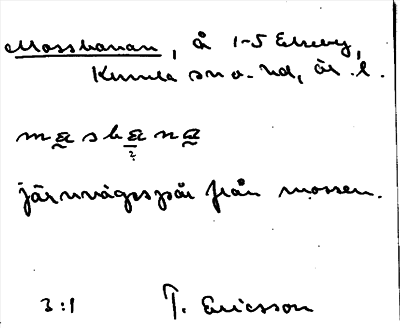 Mossbanan, å 1-5 Ekeby,
Kumla sn o. hd, är. l.
ma̰sba̰na̰
järnvägsspår från mossen.
3:1 T. Ericsson